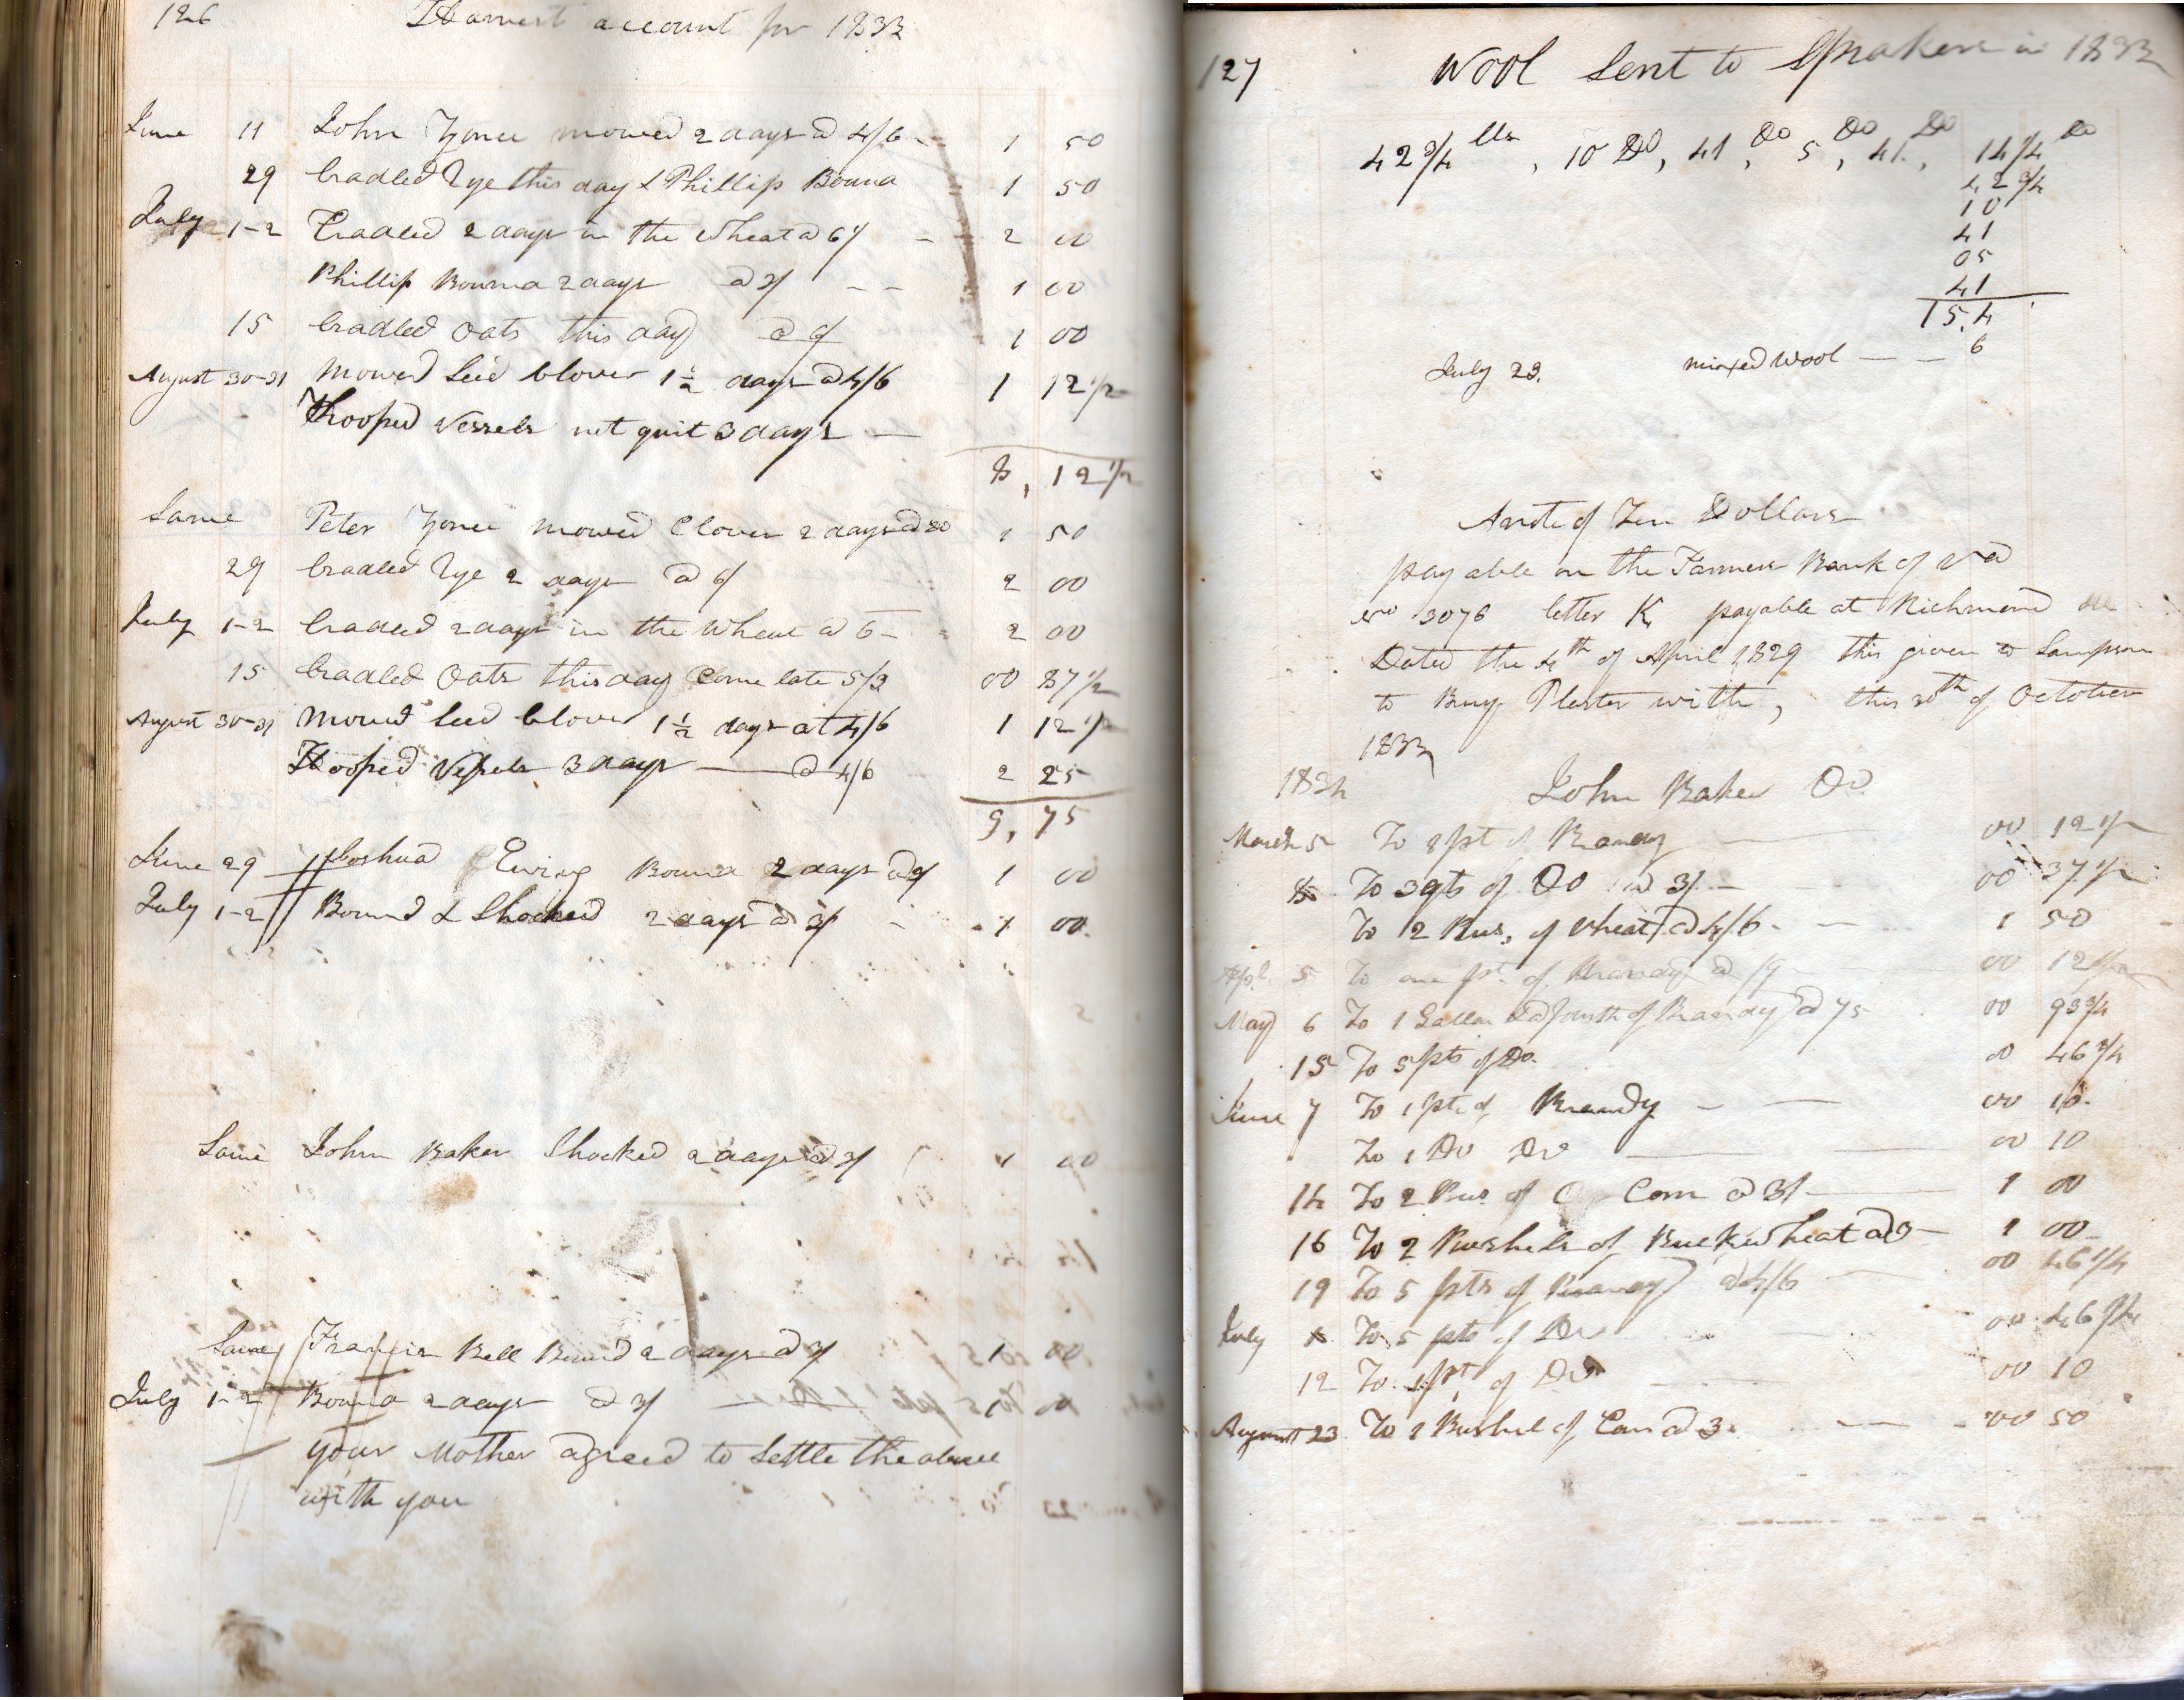 126 Harvest account for 1833
June 11 John Yonce mowed 2 days @ 4/6 - 1 50
29 Cradled Rye this day & Phillip Bound 1 50
July 1-2 Cradled 2 days in the Wheat @ 6/ - - 2 00
Phillip Bound 2 days @ 3/ - - 1 00
15 Cradled Oats this day @ 6/ 1 00
August 30-31 Mowed Seed Clover 1 1/2 days @ 4/6 1 12 1/2
Hooped Vessels not quit 3 days —
8, 12 1/2
Same Peter Yonce mowed Clover 2 days @ 1 50
29 Cradled Rye 2 days @ 6/ 2 00
July 1-2 Cradled 2 days in the Wheat @ 6 - 2 00
15 Cradled Oats this day Come late 5/3 00 87 1/2
August 30-31 Mowed Seed Clover 1 1/2 days at 4/6 1 12 1/2
Hooped Vessels 3 days — @ 4/6 2 25
9, 75
June 29 Joshua Ewing Bound 2 days @ 3/ 1 00
July 1-2 Bound & Shocked 2 days @ 3/ - 1 00
Same John Baker Shocked 2 days @ 3/ 1 00
Same Francis Bell Bound 2 days @ 3/ 1 00
July 1-2 Bound 2 days @ 3/ 1 00
your Mother agreed to Settle the above
with you
127 Wool Sent to in 1833
42 3/4 lbs, 10 Do, 41, Do 5, Do 41, Do 14 3/4 Do
42 3/4
10
41
05
41
15,4
6
July 23. mixed Wool — —
A note of Ten Dollars
payable on the Farmers Bank of Va
No 3076 letter K payable at Richmond
Dated the 4th of April 1829 this given to Sampson
to Buy Plaster with, this 30th of October
1833
1834 John Baker Dr
March 5 To 1 pt of Brandy — 00 12 1/2
To 3 qts of Do @ 3/ - 00 37 1/2
To 2 Bus, of Wheat @ 4/6 - — 1 50
Apl 5 To one pt. of Brandy @ /9 00 12 1/2
May 6 To 1 Gallon & a fourth of Brandy @ 75 00 93 3/4
15 To 5 pts of Do. 00 46 3/4
June 7 To 1 pt of Brandy - — 00 10
To 1 Do Do — 00 10
14 To 2 Bus of Corn @ 3/ — 1 00
16 To 2 Bushels of Buckwheat @ 3 — 1 00
19 To 5 pts of Brandy @ 4/6 — 00 46 3/4
July To 5 pts of Do 00 46 3/4
12 To 1 pt of Do 00 10
August 23 To 1 Bushel of Corn @ 3. — 00 50